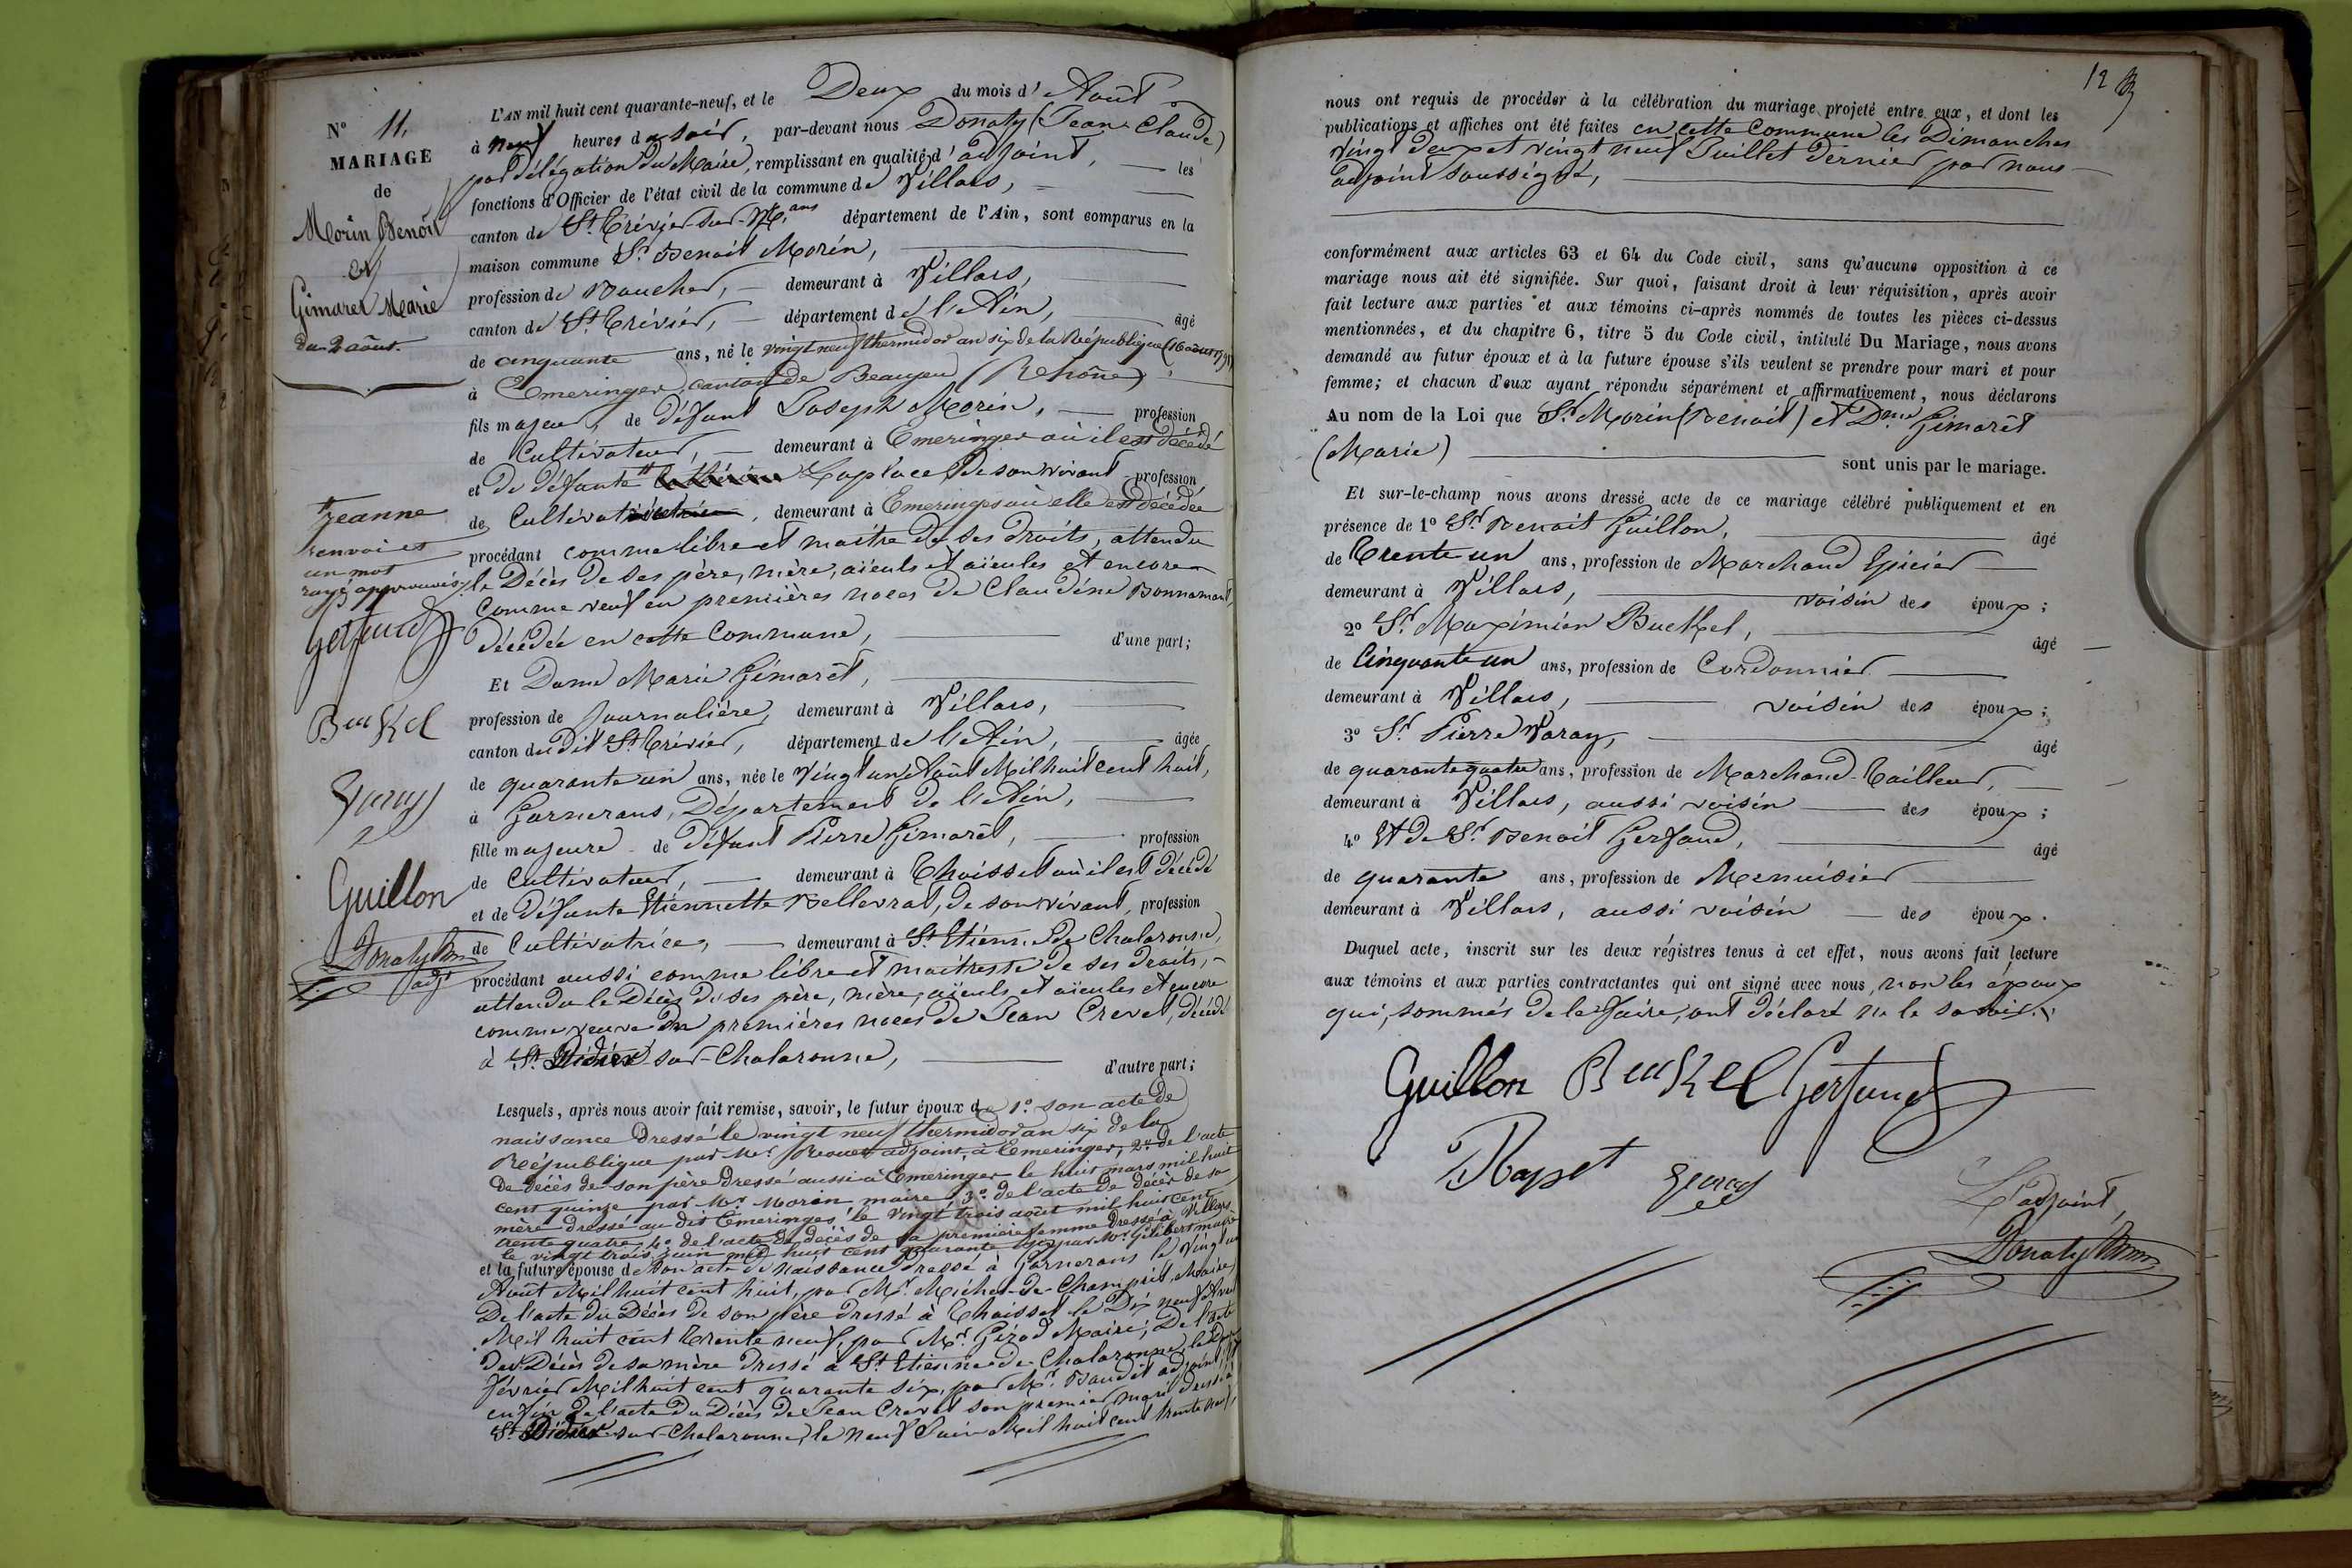 N° 11.
MARIAGE
de
Morin Benoît
et
Gimaret Marie
du 2 août.
L'AN mil huit cent quarante-neuf, et le Deux du mois d'Août
à neuf heures du soir, par-devant nous Donaty (Jean-Claude)
par délégation du Maire, remplissant en qualité d'adjoint, les
fonctions d'Officier de l'état civil de la commune de Villars,
canton de St. Trévier-sur-M.ans département de l'Ain, sont comparus en la
maison commune Sr. Benoit Morin,
profession de Boucher, demeurant à Villars,
canton de St. Trévier, département de l'Ain, âgé
de cinquante ans, né le vingt neuf thermidor an six de la République (16 août 1798)
à Emeringer, canton de Beaujeu (Rhône)
fils majeur de défunt Joseph Morin, profession
de Cultivateur, demeurant à Emeringer où il est décédé
et de défunte Laplace, de son vivant profession
de Cultivatrice, demeurant à Emeringes où elle est décédée
procédant comme libre et maitre de ses droits, attendu
le Décès de ses père, mère, aïeuls et aïeules et encore
comme veuf en premières noces de Claudine Bonnamant,
décédée en cette Commune, d'une part;
Jeanne
renvoi et
un mot
rayé approuvés
Gerfaud
Buckel
Varay
Guillon
Donaty
adjt
Et Dame Marie Gimaret,
profession de Journalière, demeurant à Villars,
canton du dit St. Trévier, département de l'Ain, âgée
de quarante un ans, née le Vingt un Août Mil huit cent huit,
à Garnerans, Département de l'Ain,
fille majeure de défunt Pierre Gimaret, profession
de Cultivateur, demeurant à Thoisset où il est décédé
et de défunte Etiennette Bellevrat, de son vivant, profession
de Cultivatrice, demeurant à St. Etienne de Chalaronne,
procédant aussi comme libre et maitresse de ses droits,
attendu le Décès de ses père, mère, aïeuls et aïeules et encore
comme veuve en premières noces de Jean Crevet, décédé
à St. Didier-sur-Chalaronne, d'autre part;
Lesquels, après nous avoir fait remise, savoir, le futur époux de 1° son acte de
naissance dressé le vingt neuf thermidor an six de la
République par Mr. adjoint, à Emeringer, 2° de l'acte
de décès de son père dressé aussi à Emeringer le huit mars mil huit
cent quinze par Mr. Morin maire, 3° de l'acte de décès de sa
mère dressé au dit Emeringes le vingt trois août mil huit cent
trente quatre, 4° de l'acte de décès de sa première femme dressé à Villars
le vingt trois juin mil huit cent quarante par Mr. Gilibert maire
et la future épouse de son acte de naissance dressé à Garnerans le vingt un
Août Mil huit cent huit, par Mr. Michel-de-Champrit, Maire,
De l'acte du Décès de son père dressé à Thoisset le Dix neuf Avril
Mil huit cent trente neuf, par Mr. Gizod Maire; De l'acte
du Décès de sa mère dressé à St. Etienne-de-Chalaronne, le
février Mil huit cent quarante six, par Mr. Baudit adjoint, Et
enfin de l'acte du Décès de Jean Crevet son premier mari dressé à
St. Didier-sur-Chalaronne, le neuf Juin Mil huit cent trente neuf,
12
nous ont requis de procéder à la célébration du mariage projeté entre eux, et dont les
publications et affiches ont été faites en cette Commune les Dimanches
vingt deux et vingt neuf Juillet dernier par nous
adjoint soussigné,
conformément aux articles 63 et 64 du Code civil, sans qu'aucune opposition à ce
mariage nous ait été signifiée. Sur quoi, faisant droit à leur réquisition, après avoir
fait lecture aux parties et aux témoins ci-après nommés de toutes les pièces ci-dessus
mentionnées, et du chapitre 6, titre 5 du Code civil, intitulé Du Mariage, nous avons
demandé au futur époux et à la future épouse s'ils veulent se prendre pour mari et pour
femme; et chacun d'eux ayant répondu séparément et affirmativement, nous déclarons
Au nom de la Loi que Sr. Morin (Benoit) et Dme. Gimarêt
(Marie) sont unis par le mariage.
Et sur-le-champ nous avons dressé acte de ce mariage célébré publiquement et en
présence de 1° Sr. Benoit Guillon, âgé
de Trente un ans, profession de Marchand Epicier
demeurant à Villars, voisin des époux;
2° Sr. Maximien Buckel, âgé
de Cinquante un ans, profession de Cordonnier
demeurant à Villars, voisin des époux;
3° Sr. Pierre Varay, âgé
de quarante quatre ans, profession de Marchand-Tailleur,
demeurant à Villars, aussi voisin des époux;
4° Et de Sr. Benoit Gerfaud, âgé
de quarante ans, profession de Menuisier
demeurant à Villars, aussi voisin des époux.
Duquel acte, inscrit sur les deux régistres tenus à cet effet, nous avons fait lecture
aux témoins et aux parties contractantes qui ont signé avec nous, non les époux
qui, sommés de le faire, ont déclaré ne le savoir.
Guillon Buckel Gerfaud
Rapet Varay
L'adjoint,
Donaty